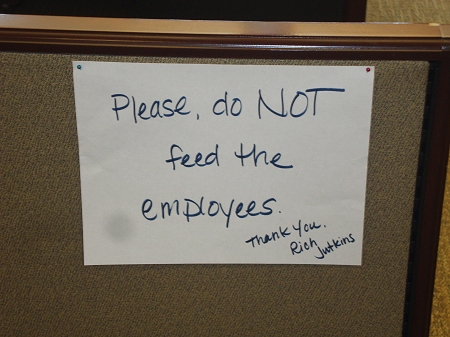 Please, do NOT
feed the
employees.
Thank You.
Rich
Jutkins